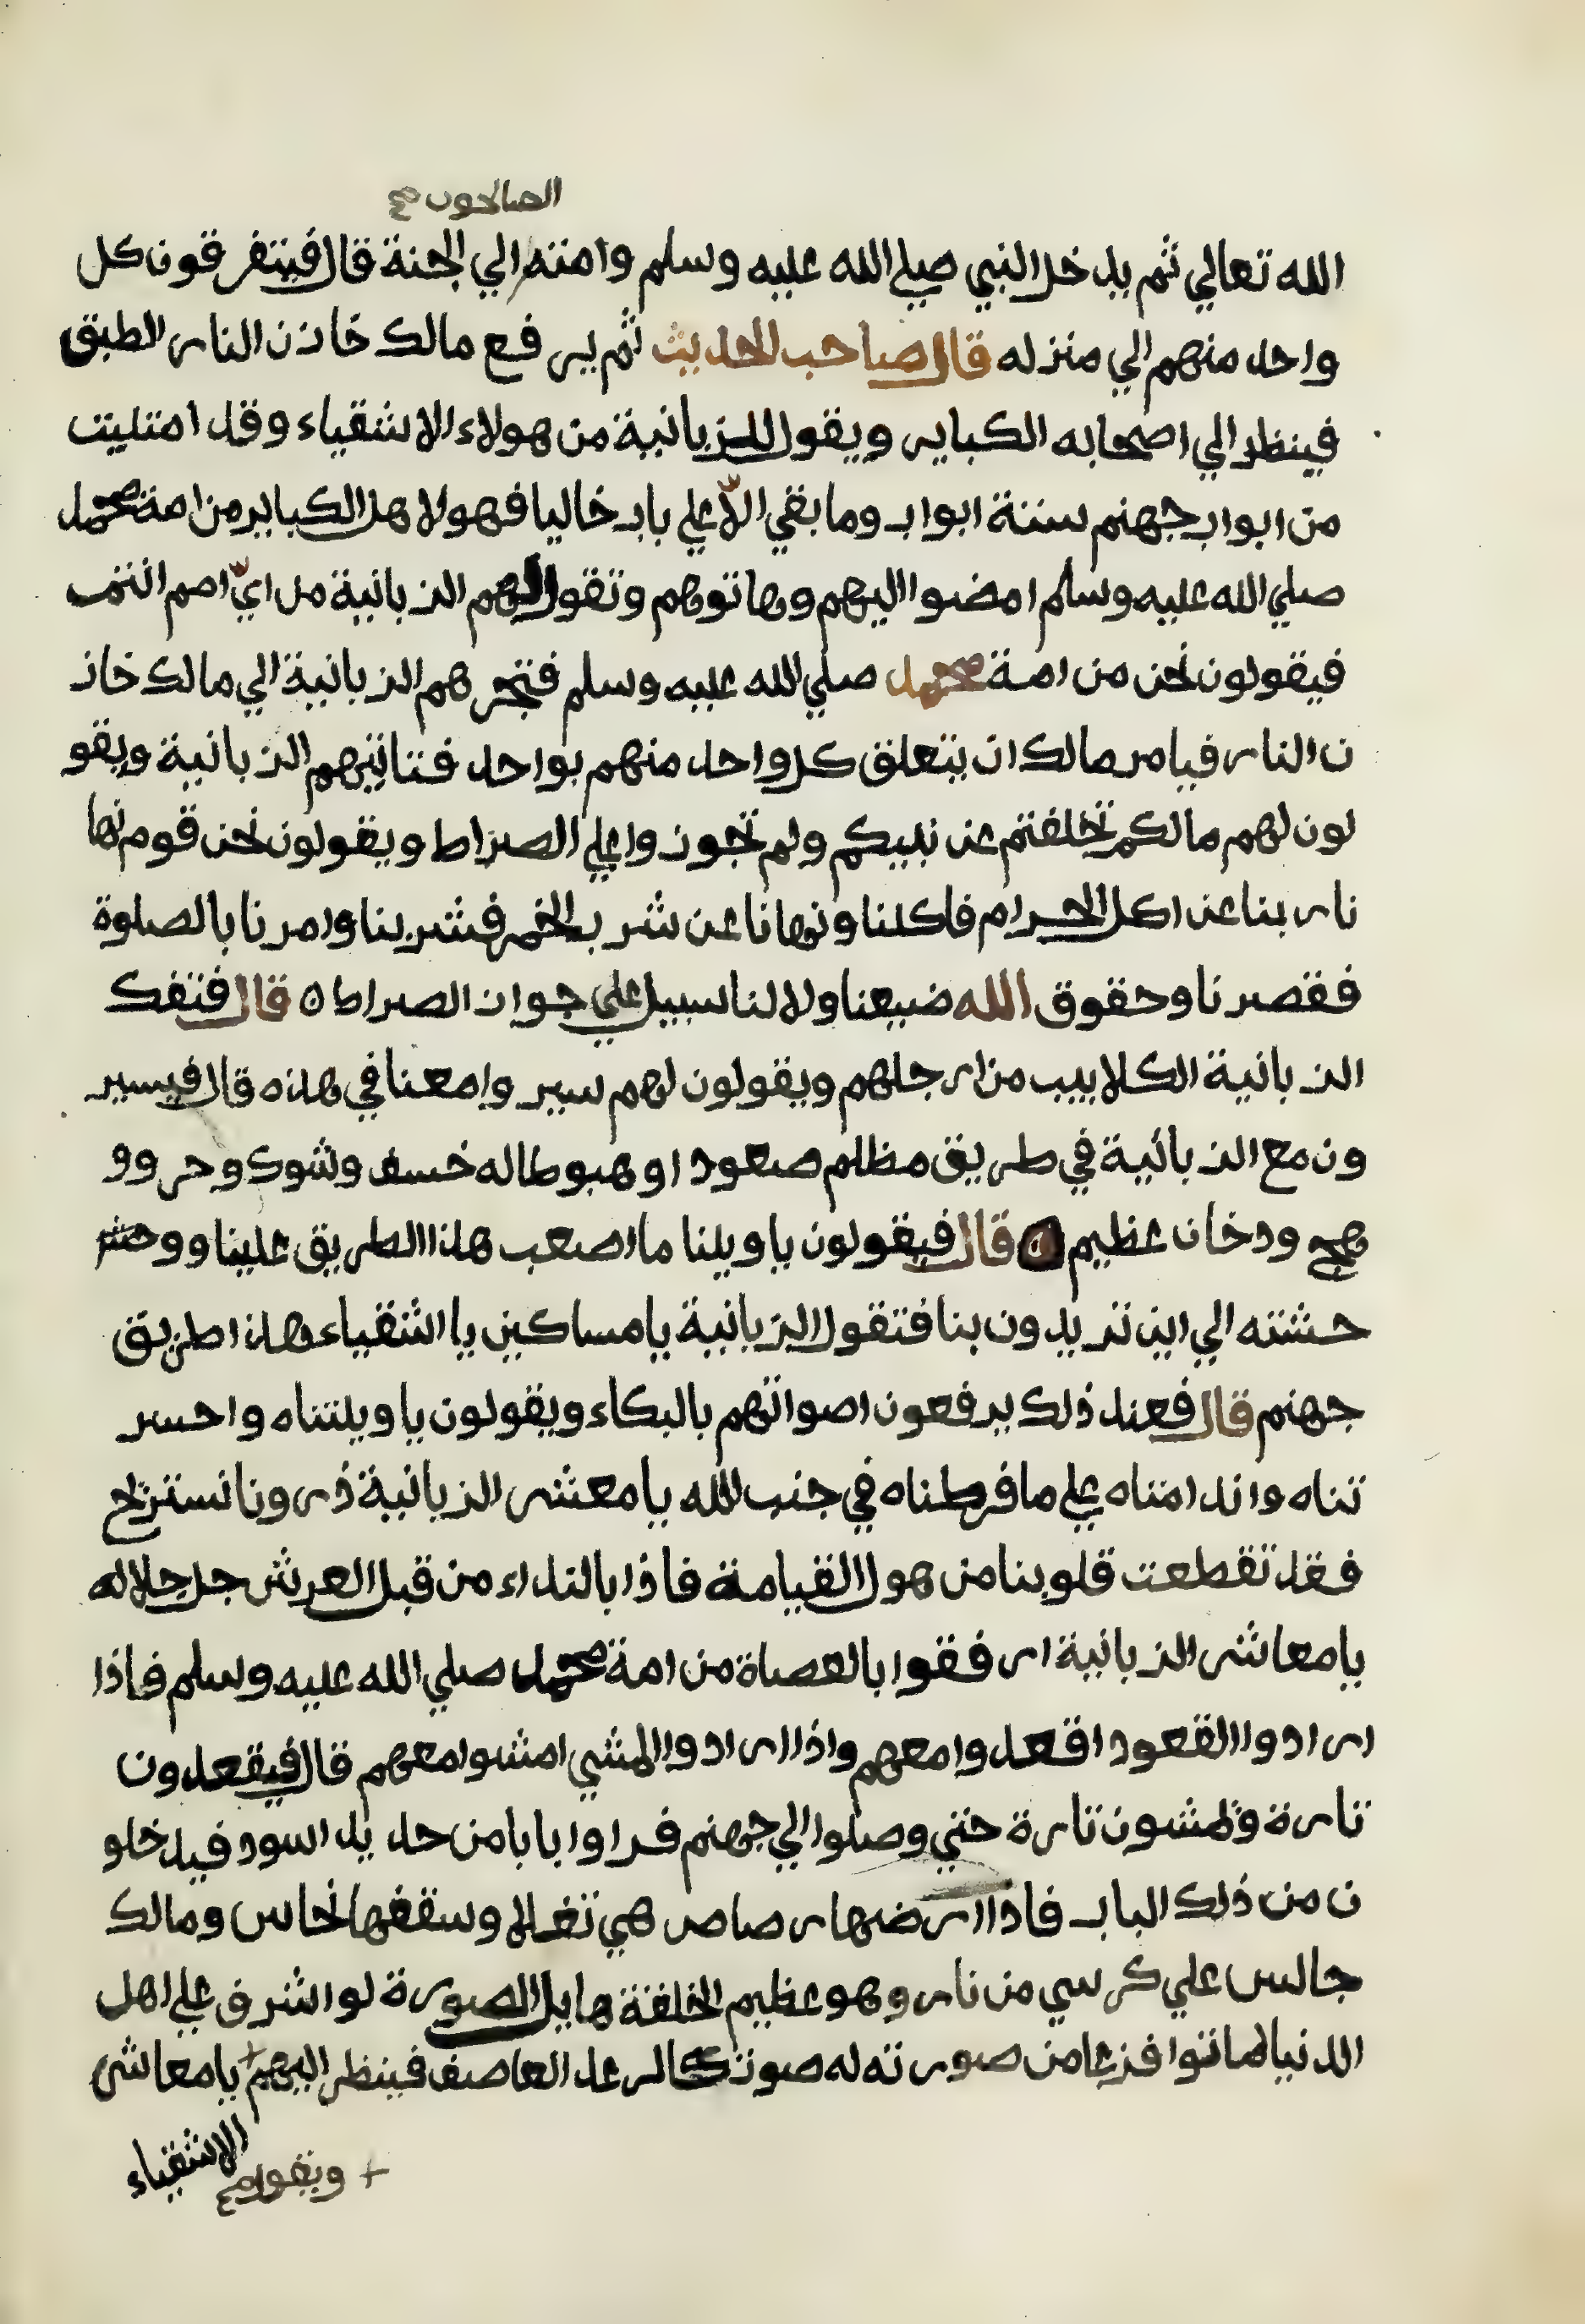 الصالحون صح
الله تعالي ثم يدخل النبي صلي الله عليه وسلم وامته الي الجنة قال فيتفرقون كل
واحد منهم الي منزله قال صاحب الحديث ثم يرفع مالك خازن النار الطبق
فينظر الي اصحابه الكباير ويقول للزبانية من هولاء الاشقياء وقد امتليت
من ابواب جهنم ستة ابواب وما بقي الّا علي باب خاليا فهولا هل الكباير من امة محمد
صلي الله عليه وسلم امضوا اليهم وهاتوهم وتقول لهم الزبانية من ايّ امم انتم
فيقولون نحن من امة محمد صلي الله عليه وسلم فتجرهم الزبانية الي مالك خاز
ن النار فيامر مالك ان يتعلق كل واحد منهم بواحد فتاتيهم الزبانية ويقو
لون لهم مالكم تخلفتم عن نبيكم ولم تجوزوا علي الصراط ويقولون نحن قوم نها
نا ربنا عن اكل الحرام فاكلنا ونهانا عن شرب الخمر فشربنا وامرنا بالصلوة
فقصرنا وحقوق الله ضيعنا ولا لنا سبيل علي جواز الصراط ه قال فتفك
الزبانية الكلاليب من ارجلهم ويقولون لهم سيروا معنا في هذه قال فيسير
ون مع الزبانية في طريق مظلم صعودا وهبوطا له خسف وشوك وحر وو
هج ودخان عظيم ه قال فيقولون ياويلنا ما اصعب هذا الطريق علينا ووحشـ
حشته الي اين تريدون بنا فتقول الزبانية يا مساكين يا اشقياء هذا طريق
جهنم قال فعند ذلك يرفعون اصواتهم بالبكاء ويقولون يا ويلتناه واحسر
تناه واندامتاه علي ما فرطناه في جنب الله يا معشر الزبانية ذرونا نستريح
فقد تقطعت قلوبنا من هول القيامة فاذا بالنداء من قبل العرش جل جلاله
يا معاشر الزبانية ارفقوا بالعصاة من امة محمد صلي الله عليه وسلم فاذا
ارادوا القعود اقعدوا معهم واذا ارادوا المشي امشوا معهم قال فيقعدون
تارة ويمشون تارة حتي وصلوا الي جهنم فراوا بابا من حديد اسود فيدخلو
ن من ذلك الباب فاذا ارضها رصاص هي تغلا وسقفها نحاس ومالك
جالس علي كرسي من نار وهو عظيم الخلقة هايل الصورة لو اشرف علي اهل
الدنيا لماتوا فزعا من صورته له صوت كالرعد العاصف فينظر اليهم + يا معاشر
الاشقياء
+ ويقول صح